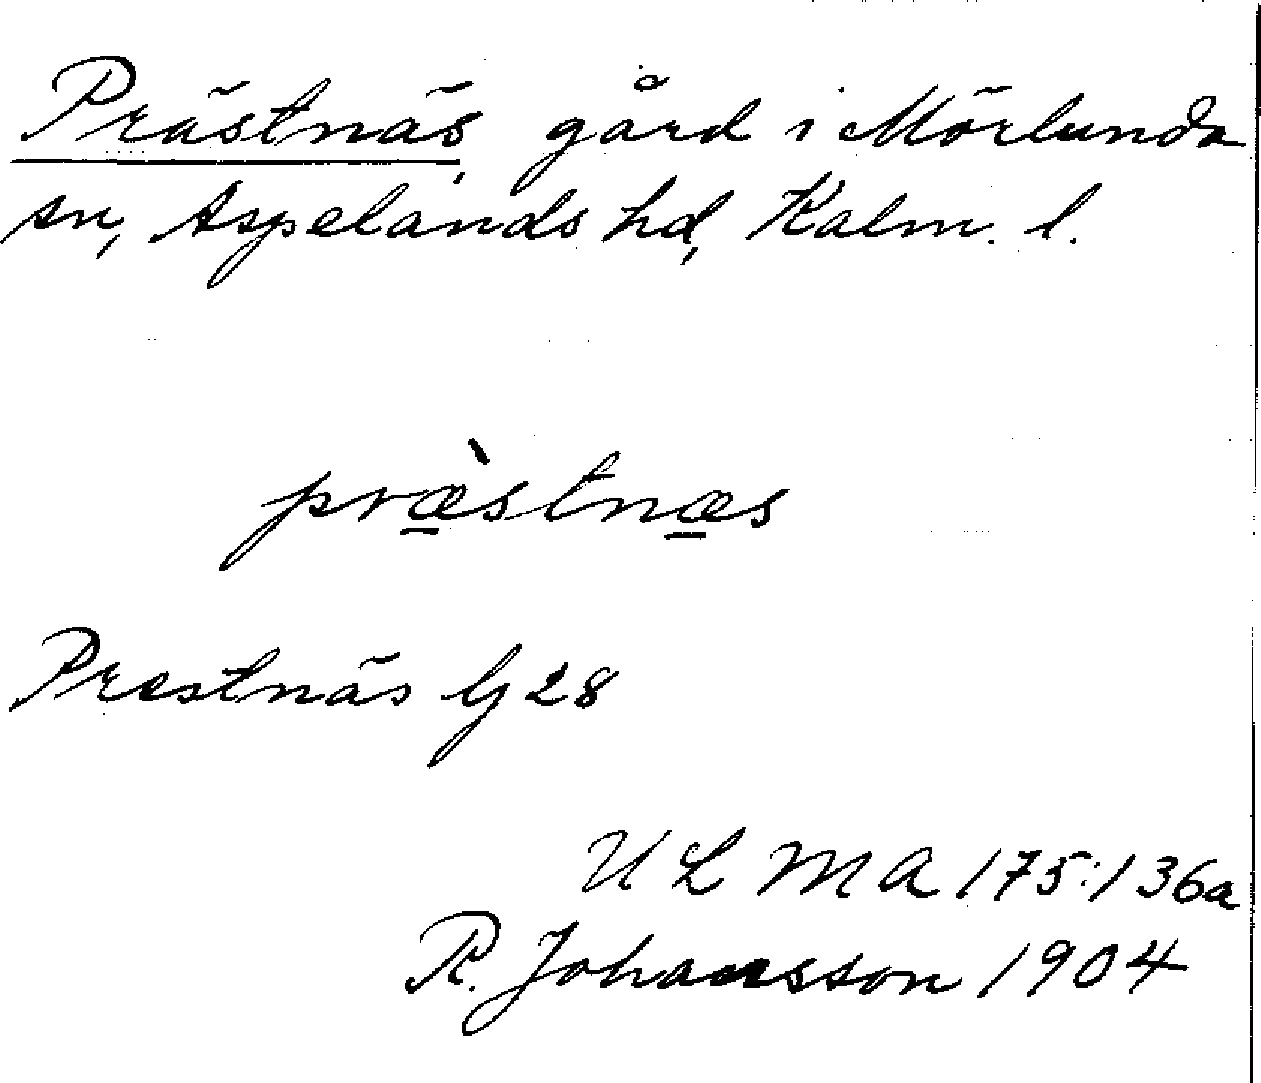 Prästnäs, gård i Mörlunda
sn, Aspelands hd, Kalm. l.
præ̀stnæs
Prestnäs G 28
ULMA 175:136a
R. Johansson 1904